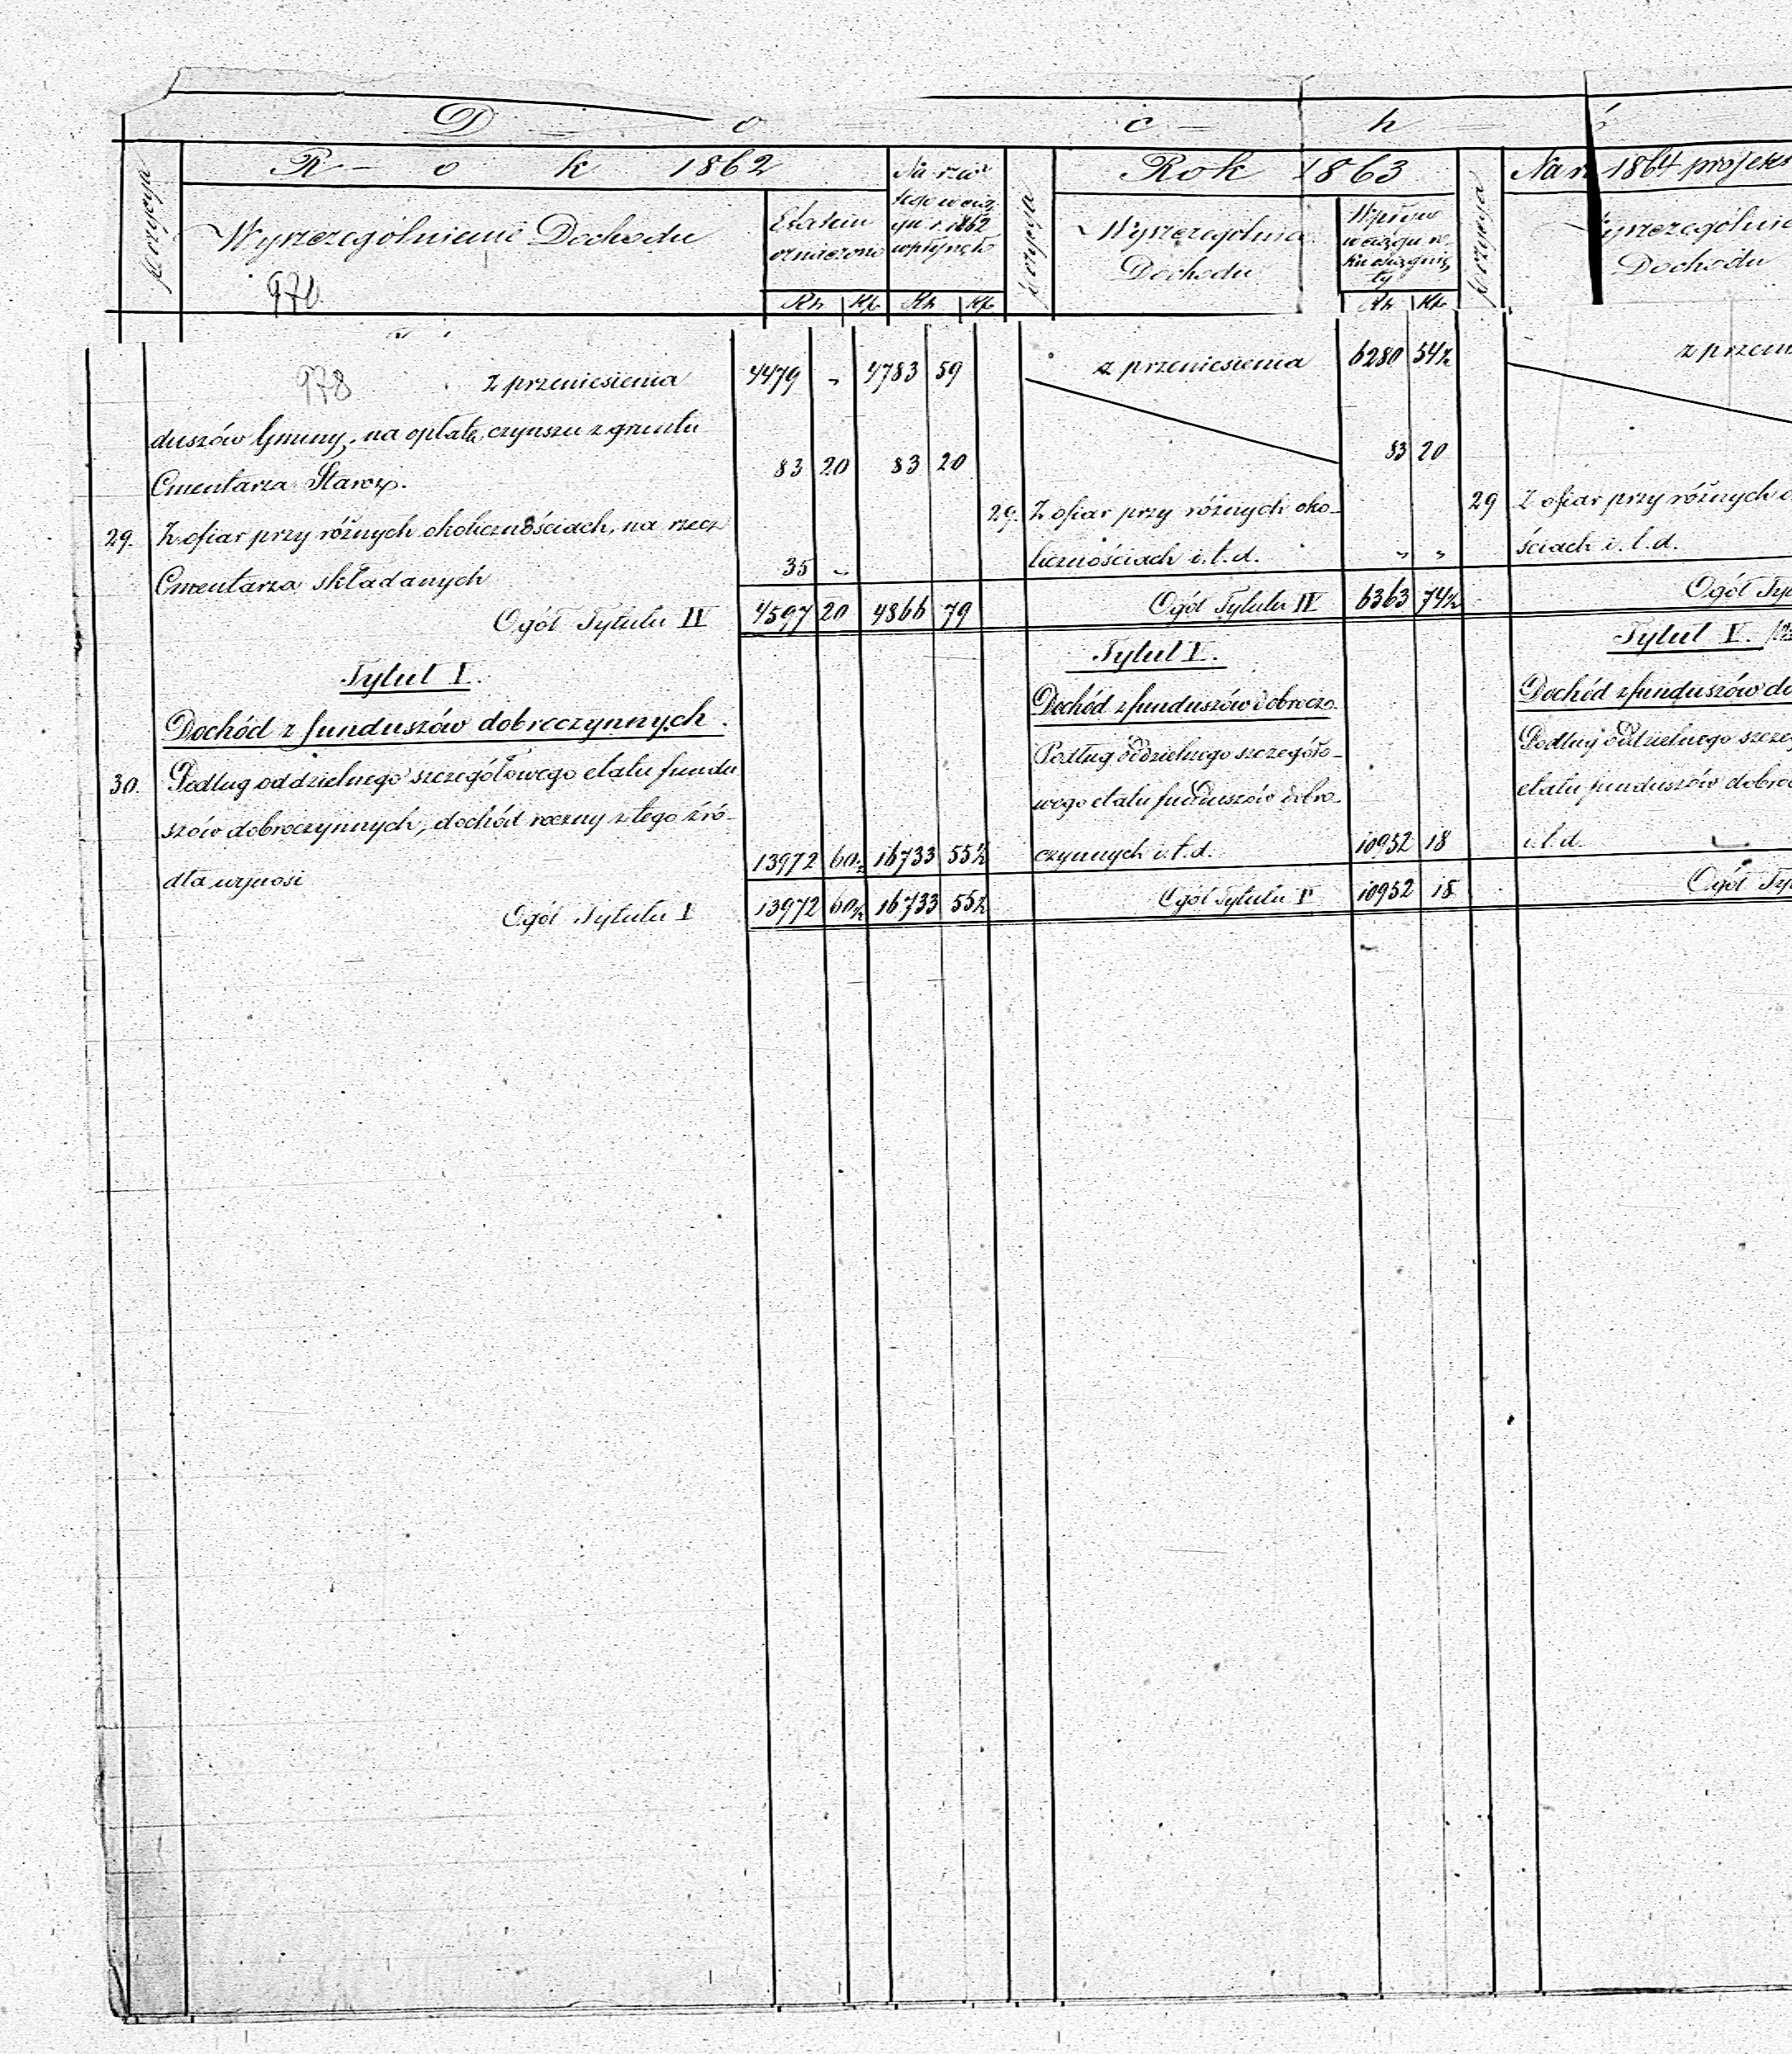 D o c h ó
R o k 1862
Rok 1863
1864 projekt
pozycya
Wyszczególnienie Dochodu
Etatem
oznaczono
w ciągu
r. 1862
wpłynęło
pozycya
Wyszczególnie
Dochodu
Wpływ
w ciągu
pozycya
yszczególnie
Dochodu
Rs Kp Rs Kp
Rs Kp
970
978
z przeniesienia 4479 " 4783 59
duszów Gminy, na opłatę czynszu z gruntu
Cmentarza Staroz. 83 20 83 20
29. Z ofiar przy różnych okolicznościach, na rzecz
Cmentarza składanych 35 "
Ogół Tytułu IV 4597 20 4866 79
Tytuł V.
Dochód z funduszów dobroczynnych.
30. Podług oddzielnego szczegółowego etatu fundu
szów dobroczynnych, dochód roczny z tego źró-
dła wynosi 13972 60½ 16733 55½
Ogół Tytułu V 13972 60½ 16733 55½
z przeniesienia 6280 54½
83 20
29. Z ofiar przy różnych oko-
licznościach i.t.d. " "
Ogół Tytułu IV 6363 74½
Tytuł V.
Dochód z funduszów dobrocz.
Podług oddzielnego szczegóło-
wego etatu funduszów dobro-
czynnych i.t.d. 10952 18
Ogół Tytułu V 10952 18
z przeni
29 Z ofiar przy różnych o
ściach i.t.d.
Ogół Tyt
Tytuł V.
Dochód z funduszów do
Podług oddzielnego szczeg
etatu funduszów dobro
i.t.d.
Ogół Ty